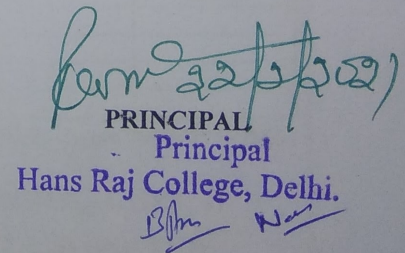 22/2/2021
PRINCIPAL
Principal
Hans Raj College, Delhi.